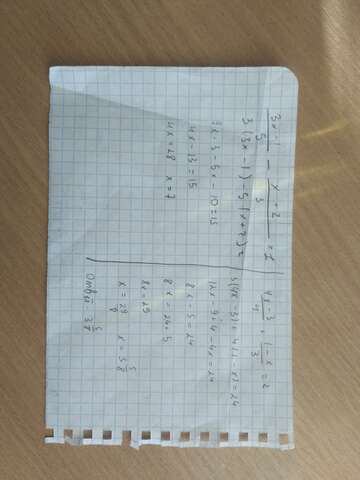 3x-1/5 - x+2/3 = 1
3(3x-1)-5(x+2)=
9x-3-5x-10=15
4x-13=15
4x=28 x=7
4x-3/4 + 1-x/3 = 2
3(4x-3)+4(1-x)=24
12x-9+4-4x=24
8x-5=24
8x=24+5
8x=29
x=29/8 x=3 5/8
Ответ 3 5/8